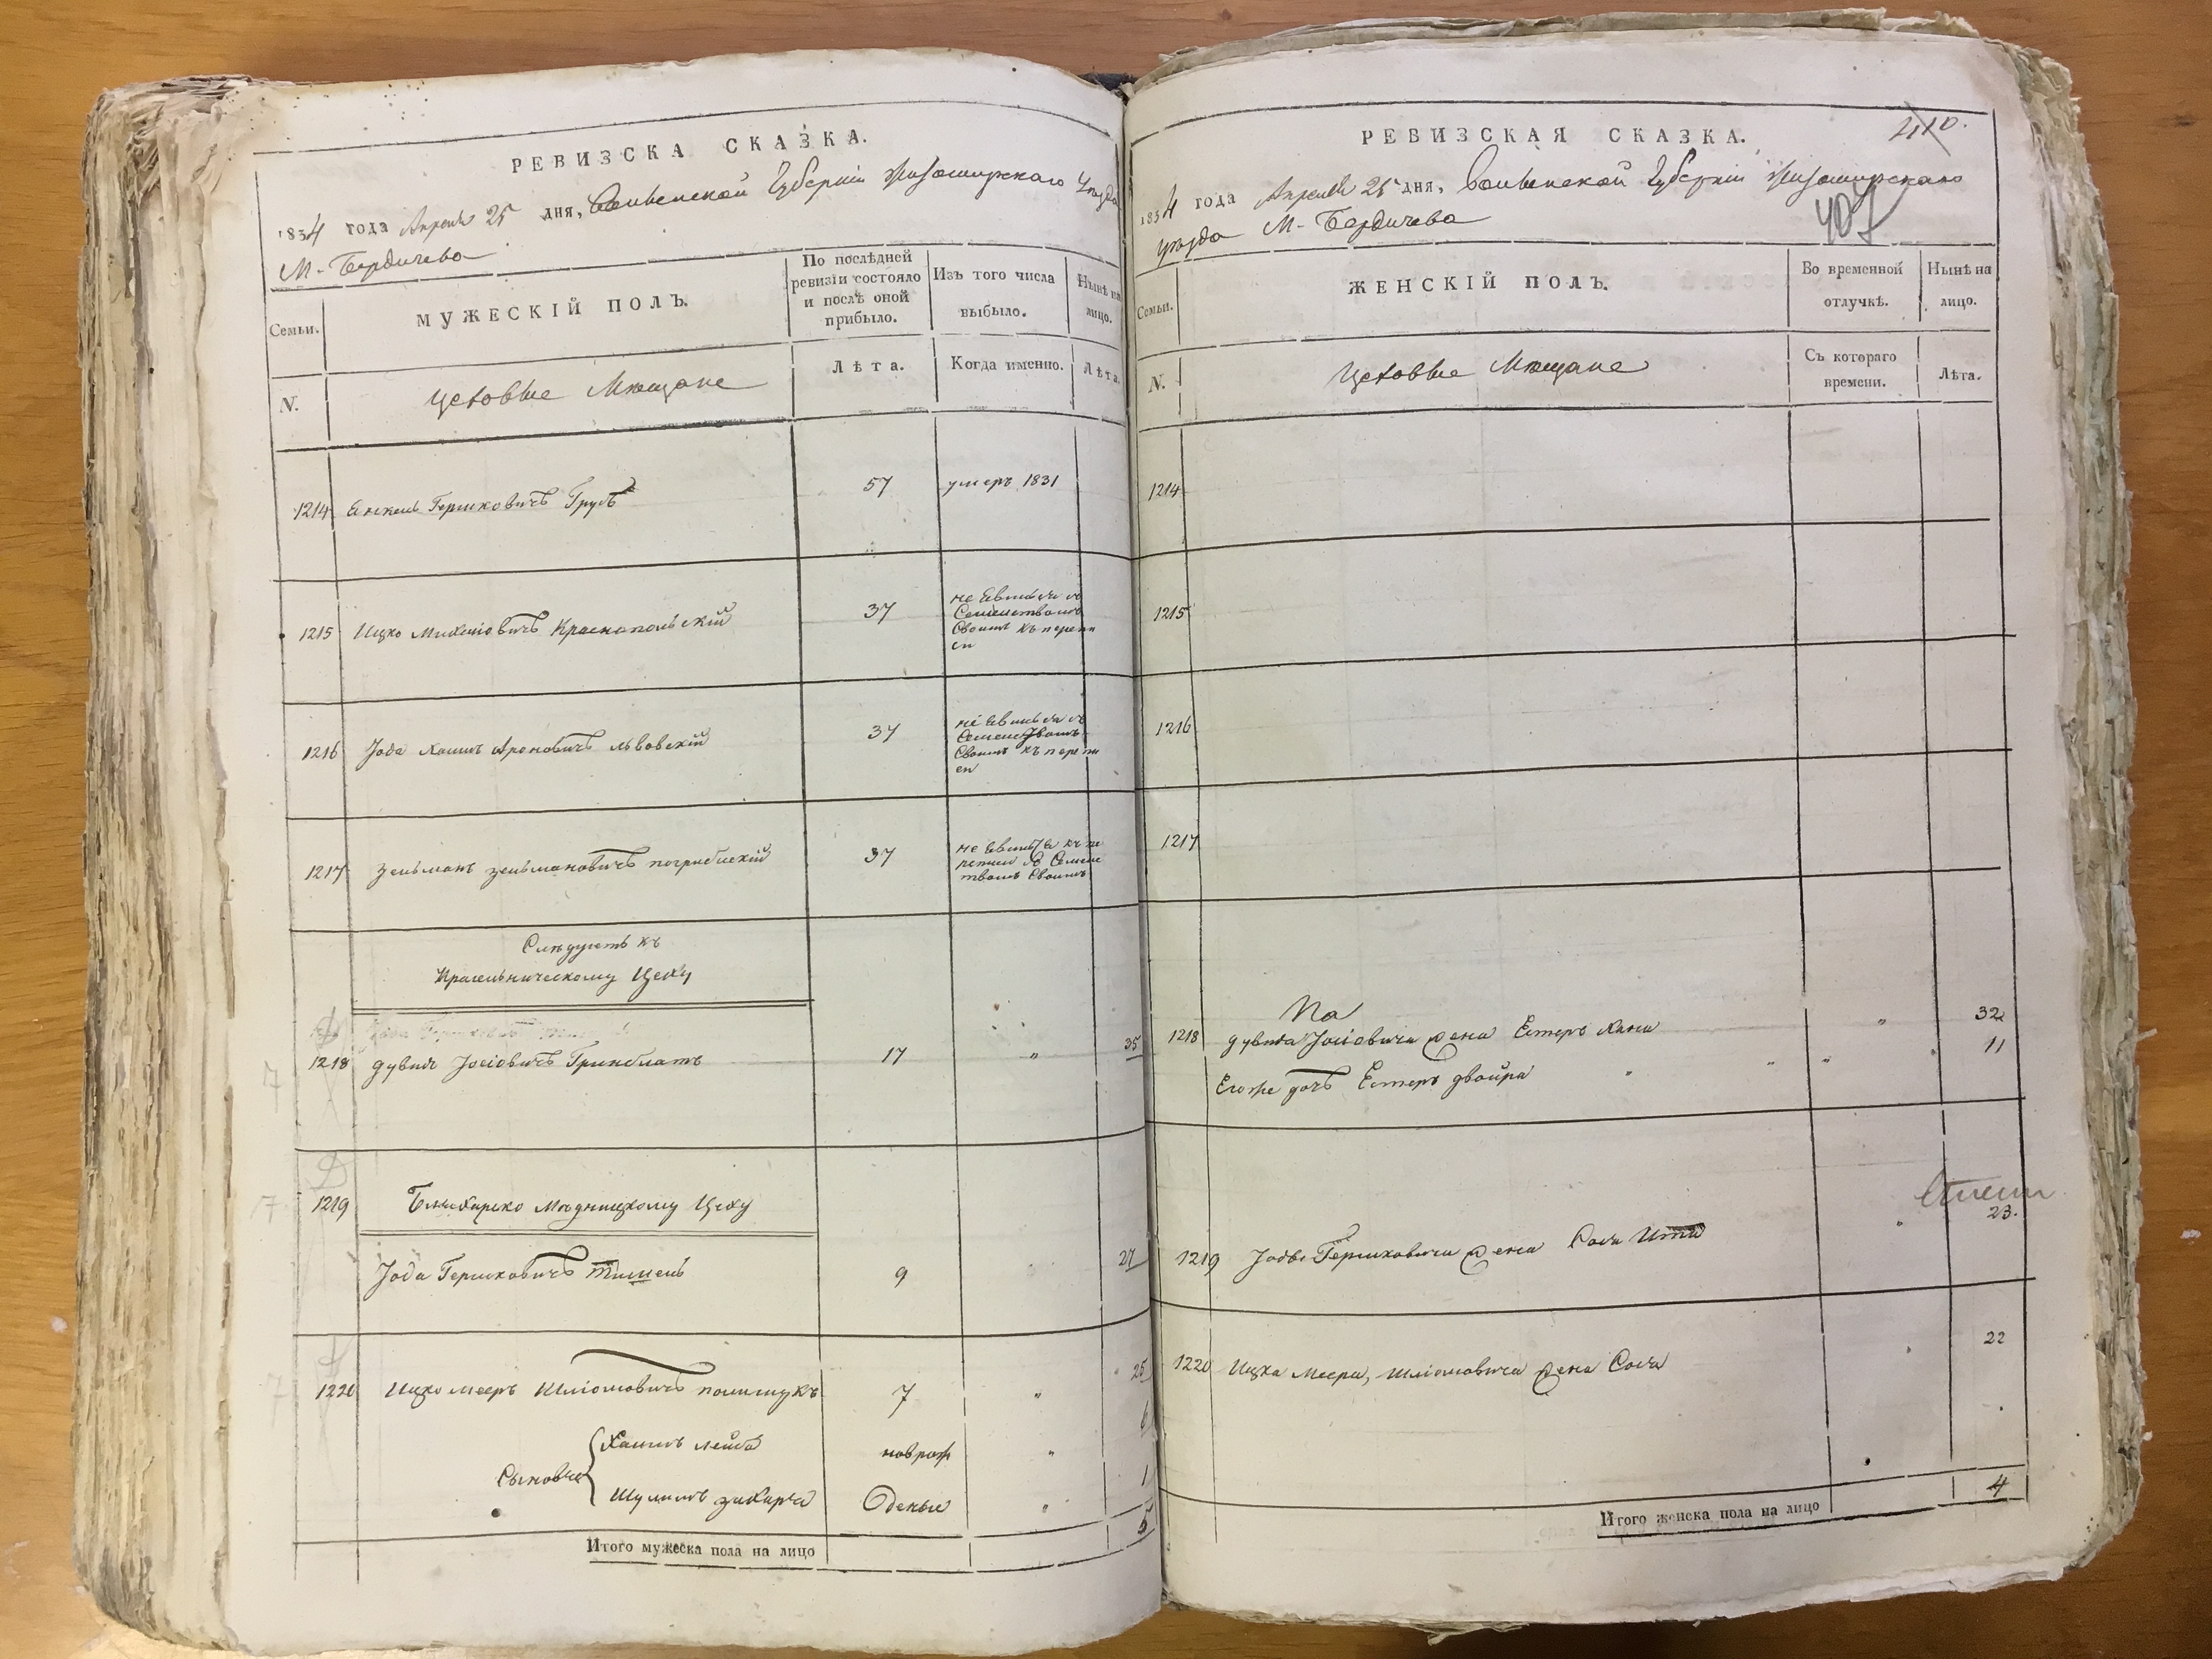 РЕВИЗСКА СКАЗКА.
1834 года Апреля 25 дня, Волынской Губерніи Житомирскаго Уезда
М. Бердичева
Семьи.
МУЖЕСКІЙ ПОЛЪ.
По послѣдней ревизіи состояло и послѣ оной прибыло.
Изъ того числа выбыло.
Нынѣ на лицо.
N.
Цеховые Мещане
Лѣта.
Когда именно.
Лѣта.
1214 Янкель Гершковичъ Грубъ 57 умеръ 1831
1215 Ицко Михелiовичъ Краснопольскій 37 не явился съ
Семействомъ
Своимъ къ перепи
си
1216 Іода Хаимъ Ароновичъ Львовскій 37 не явился съ
Семействомъ
Своимъ къ перепи
си
1217 Зельманъ Зельмановичъ Погребискій 37 не явился къ пе
реписи съ Семейс
твомъ Своимъ
Слѣдуетъ къ
Красельническому Цеху
1218 Дувидъ Іосіовичъ Гринблатъ 17 " 35
1219 Блихарско Медницкому Цеху
Іода Гершковичъ 9 27
1220 Ицко Мееръ Шліомовичъ Полищукъ 7 " 25
Сыновья
Хаимъ Лейба новрож " 6
Шулимъ Захарiя Оденые " 1
Итого мужеска пола на лицо 5
РЕВИЗСКАЯ СКАЗКА.
410.
1834 года Апреля 25 дня, Волынской Губерніи Житомирскаго
407
Уезда М. Бердичева
Семьи.
ЖЕНСКІЙ ПОЛЪ.
Во временной отлучкѣ.
Нынѣ на лицо.
N.
Цеховые Мещане
Съ котораго времени.
Лѣта.
1214
1215
1216
1217
1218 Дувида Іосіовича жена Естеръ Хана " 32
Его же дочь Естеръ Двойра " " " 11
1219 Іоды Гершковича жена Сося " 23.
1220 Ицка Меера, Шліомовича жена Сося 22
Итого женска пола на лицо 4